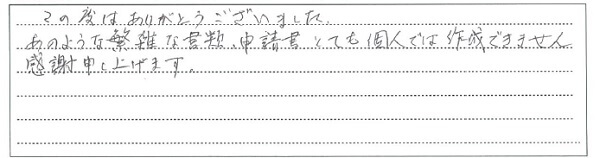 この度はありがとうございました.
あのような繁雑な書類、申請書 とても個人では作成できません
感謝申し上げます。